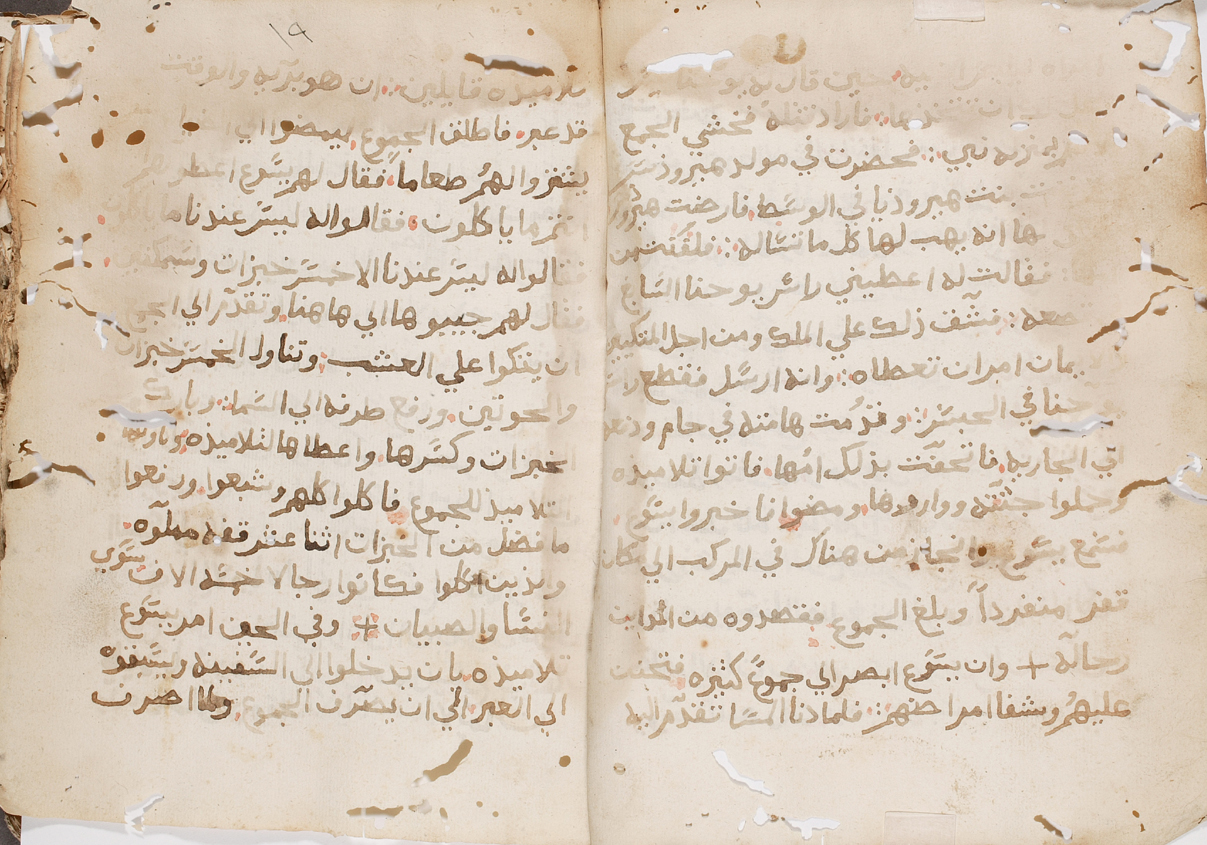 حين قال له يوحنا
فاراد تتله فخشي الجمع
نبي : فحضرت في مولد هيرودس
بنت هيروديا في الوسط فارضت هيرودس
انه يهب لها كل ما تساله : فلقنت من
فقالت له اعطيني راس يوحنا الصابغ
فشق ذلك علي الملك ومن اجل المتكيين
امر ان تعطاه : وانه ارسل فقطع راس
يوحنا في الحبس : وقدمت هامته في جام ودفعت
الي الجاريه فاتحفت بذلك امها فاتوا تلاميذه
وحملوا جثته وواروها ومضوا نا خبروا يسوع
فسمع يسوع وانحاز من هناك في المركب الي مكان
قفر منفرداً وبلغ الجموع فقصدوه من المداين
رجاله + وان يسوع ابصر الي جموع كثيره فتحنن
عليهم وشفا امراضهم : فلما دنا المسا تقدم اليه
١٩
تلاميذه قايلين : ان هو بريه والوقت
قد عبر فاطلق الجموع ليمضوا الي
يشتروا لهم طعاما فقال لهم يسوع اعطوهم
انتم ما ياكلون فقالوا له ليس عندنا ما ياكلون
فقالوا له ليس عندنا الا خمس خبزات وسمكتين
فقال لهم جيبوها الي هاهنا وتقدم الي الجموع
ان يتكوا علي العشب وتناول الخمس خبزات
والحوتين ورفع طرفه الي السما وبارك
الخبزات وكسرها واعطاها لتلاميذه وناولها
التلاميذ للجموع فاكلوا كلهم وشبعوا ورفعوا
ما فضل من الخبزات اثنا عشر قفه مملوه
والذين اكلوا فكانوا رجالا خمسه الاف سوي
النسا والصبيان + وفي الحين امر يسوع
تلاميذه بان يدخلوا الي السفينه وليسبقوه
الي العبر الي ان يصرف الجموع ولما اصرف